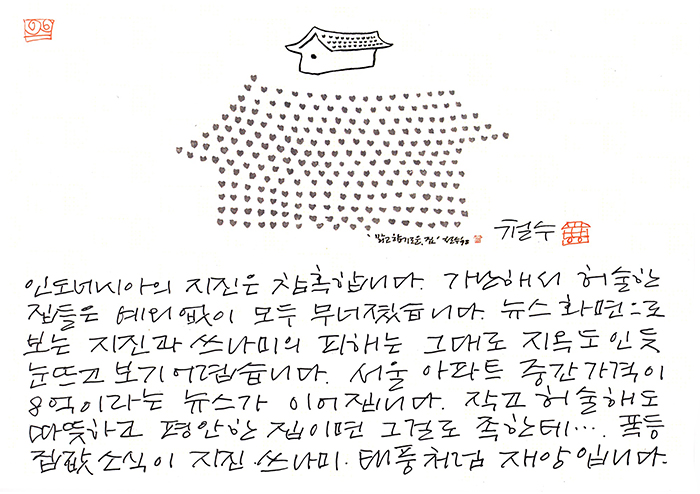 '맑고 향기로운 집' 철수
철수
인도네시아의 지진은 참혹합니다. 가난해서 허술한
집들은 예외없이 모두 무너졌습니다. 뉴스화면으로
보는 지진과 쓰나미의 피해는 그대로 지옥도인듯
눈뜨고 보기어렵습니다. 서울 아파트 중간가격이
8억이라는 뉴스가 이어집니다. 작고 허술해도
따뜻하고 평안한 집이면 그걸로 족한데···. 폭등
집값소식이 지진·쓰나미·태풍처럼 재앙입니다.